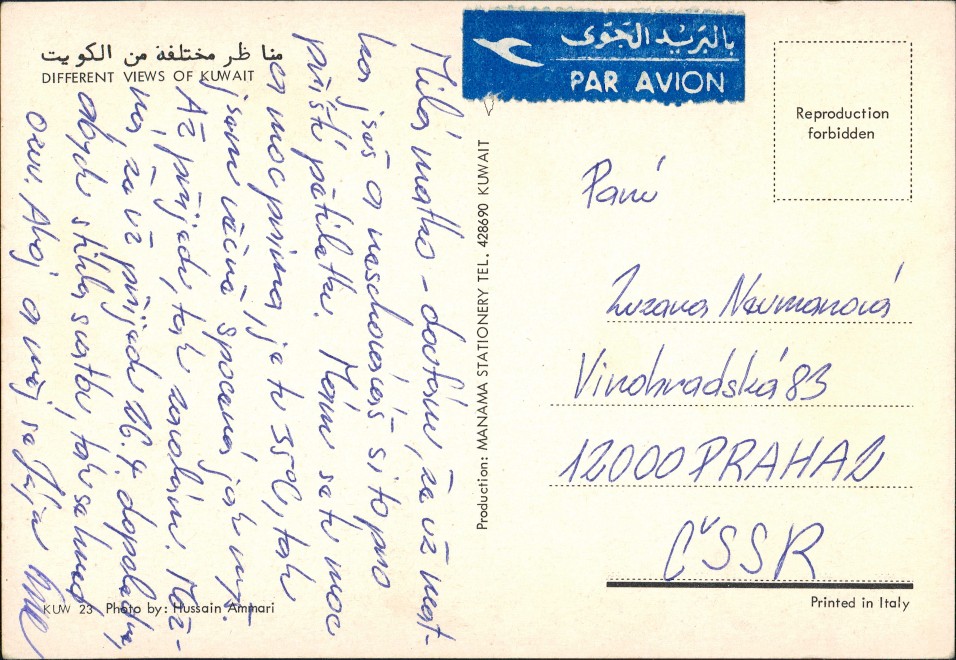 منا ظر مختلفة من الكويت
DIFFERENT VIEWS OF KUWAIT
بالبريد الجوى
PAR AVION
Reproduction
forbidden
Milá matko - doufám, že už mat-
kou jsi a neschováváš si to pro
příští pětiletku. Mám se tu moc
a moc prima, je tu 35°C, tak
jsem věčně spocená jak myš.
Až přijedu, tak zavolám. Mož-
ná, že už přijedu 26.4. dopoledne,
abych stihla svatbu, tak se hned
ozvu. Ahoj a měj se
Production: MANAMA STATIONERY TEL. 428690 KUWAIT
Paní
Zuzana Neumanová
Vinohradská 83
12000 PRAHA 2
ČSSR
KUW 23 Photo by: Hussain Ammari
Printed in Italy